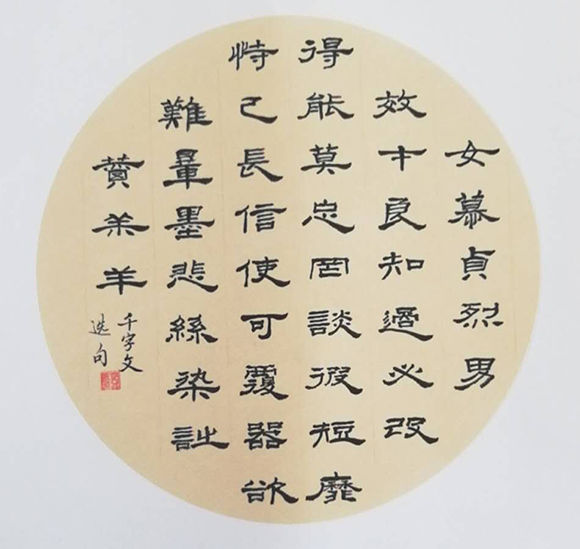 女慕貞烈男
效才良知過必改
得能莫忘罔談彼短靡
恃己長信使可覆器欲
難量墨悲絲染詩
贊羔羊
千字文
選句